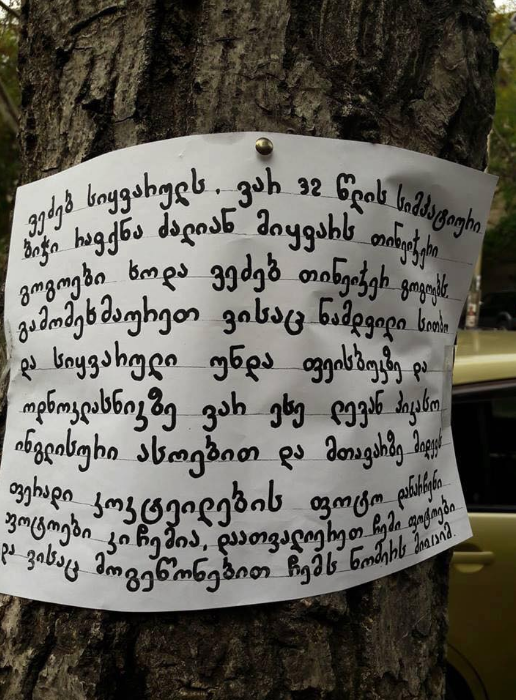 ვეძებ სიყვარულს. ვარ 32 წლის სიმპატიური
ბიჭი რავქნა ძალიან მიყვარს თინეიჯერი
გოგოები ხოდა ვეძებ თინეიჯერ გოგოებს.
გამომეხმაურეთ ვისაც ნამდვილი სითბო
და სიყვარული უნდა ფეისბუკზე და
ოდნოკლასნიკზე ვარ ესე ლევან პიკასო
ინგლისური ასოებით და მთავარზე მიდევს
ფერადი კოკტეილების ფოტო დანარჩენი
ფოტოები კი ჩემია, დაათვალიერეთ ჩემი ფოტოები
და ვისაც მოგეწონებით ჩემს ნომერს მივცემ.